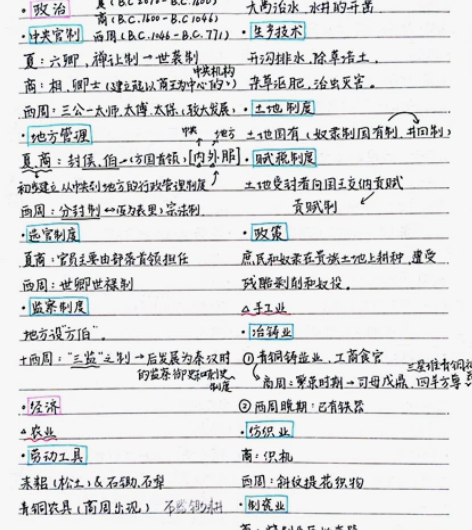 ·政治
夏(B.C.2070-B.C.1600)
商(B.C.1600-B.C.1046)
·中央官制 西周(B.C.1046-B.C.771)
夏：六卿，禅让制→世袭制
商：相、卿士(建立起以商王为中心的
中央机构
西周：三公—太师、太傅、太保(较大发展)
·地方管理
中央 地方
夏、商：封侯、伯(方国首领)[内外服]
初步建立从中央到地方的行政管理制度
西周：分封制↔(互为表里)宗法制
·选官制度
夏商：官员主要由部落首领担任
西周：世卿世禄制
·监察制度
地方设"方伯"。
西周："三监"之制→后发展为秦汉时
的监察御史和刺史
制度
·经济
△农业
·劳动工具
耒耜(松土)&石锄、石犁
青铜农具(商周出现)
大禹治水，水井的开凿
·生产技术
开沟排水，除草培土，
杂草沤肥，治虫灭害。
·土地制度
土地国有(奴隶制国有制，井田制)
·赋税制度
土地受封者向国王交纳贡赋
贡赋制
·政策
庶民和奴隶在贵族土地上耕种，遭受
残酷剥削和奴役。
△手工业
·冶铸业
①青铜铸造业，工商食官
三星堆青铜
商周：繁荣时期→司母戊鼎、四羊方尊
②西周晚期：已有铁器
·纺织业
商：织机
西周：斜纹提花织物
·制瓷业